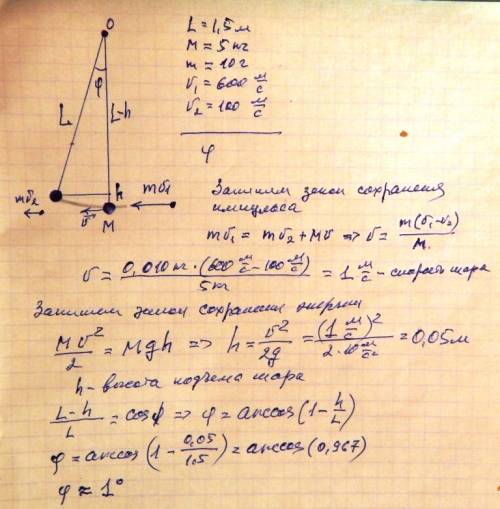 O
L = 1,5 м
M = 5 кг
m = 10 г
v₁ = 600 м/с
v₂ = 100 м/с
φ
φ
L
L-h
h
mv₂
v
M
mv₁
Запишем закон сохранения
импульса
mv₁ = mv₂ + Mv ⇒ v = m(v₁-v₂)/M
v = 0,010 кг · (600 м/с - 100 м/с)/5 кг = 1 м/с - скорость шара
Запишем закон сохранения энергии
Mv²/2 = Mgh ⇒ h = v²/2g = (1 м/с)²/2·10 м/с² = 0,05 м
h - высота подъема шара
L-h/L = cosφ ⇒ φ = arccos(1 - h/L)
φ = arccos(1 - 0,05/1,5) = arccos(0,967)
φ ≈ 1°